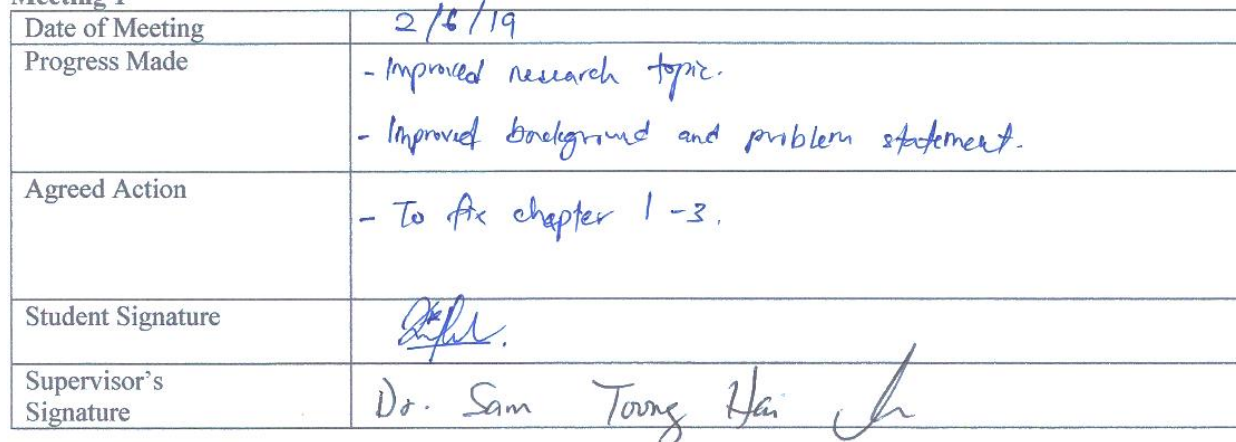 Meeting 1
Date of Meeting 2/6/19
Progress Made - Improved research topic.
- Improved background and problem statement.
Agreed Action - To fix chapter 1-3.
Student Signature
Supervisor's
Signature Dr. Sam Toong Hai